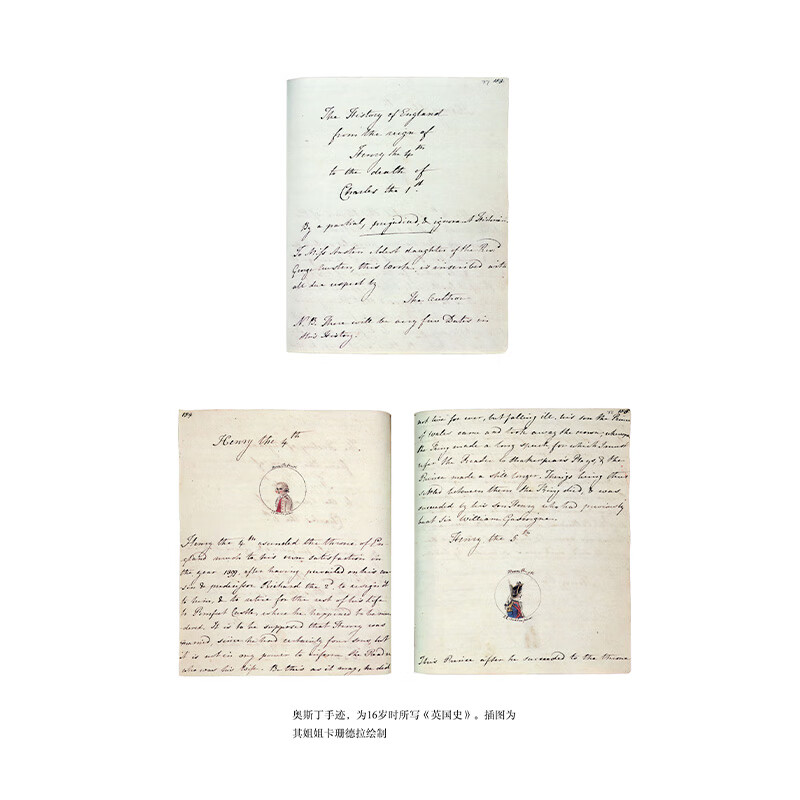 The History of England
from the reign of
Henry the 4th
to the death of
Charles the 1st.
By a partial, prejudiced, & ignorant Historian.
To Miss Austen eldest daughter of the Revd
George Austen, this Work is inscribed with
all due respect by
The Author
N.B. There will be very few Dates in
this History.
189
Henry the 4th
Henry the 4th ascended the throne of En-
gland much to his own satisfaction in
the year 1399, after having prevailed on his cou-
sin & predecessor Richard the 2d, to resign it
to him, & to retire for the rest of his life
to Pomfret Castle, where he happened to be mur-
dered. It is to be supposed that Henry was
married, since he had certainly four sons, but
it is not in my power to inform the Reader
who was his Wife. Be this as it may, he did
not live for ever, but falling ill, his son the Prince
of Wales came and took away the crown; whereupon
the King made a long speech, for which I must
refer the Reader to Shakespear's Plays, & the
Prince made a still longer. Things being thus
settled between them the King died, & was
succeeded by his son Henry who had previously
beat Sir William Gascoigne.
Henry the 5th
This Prince after he succeeded to the throne
奥斯丁手迹，为16岁时所写《英国史》。插图为
其姐姐卡珊德拉绘制